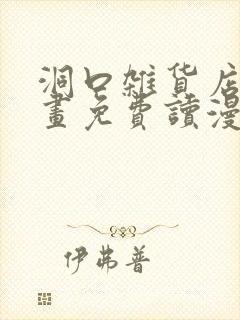 洞口雜貨店
畫免費讀漫
伊弗普